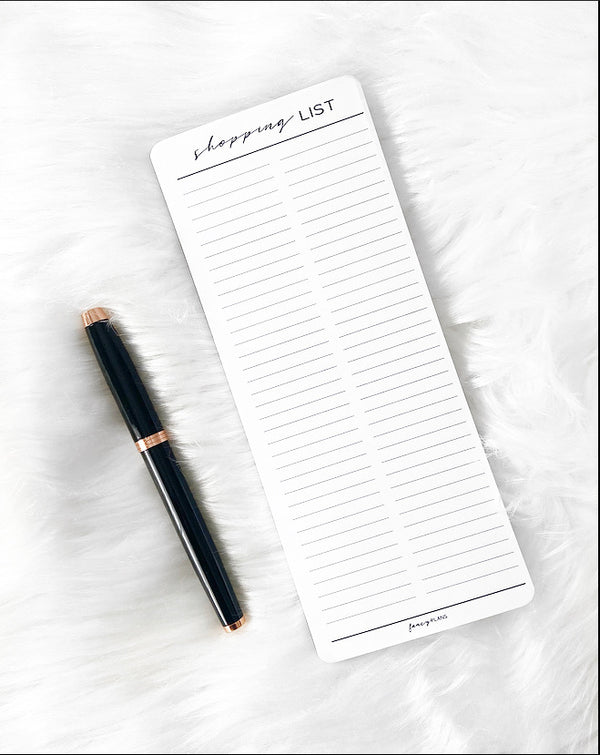 shopping LIST
fancy PLANS